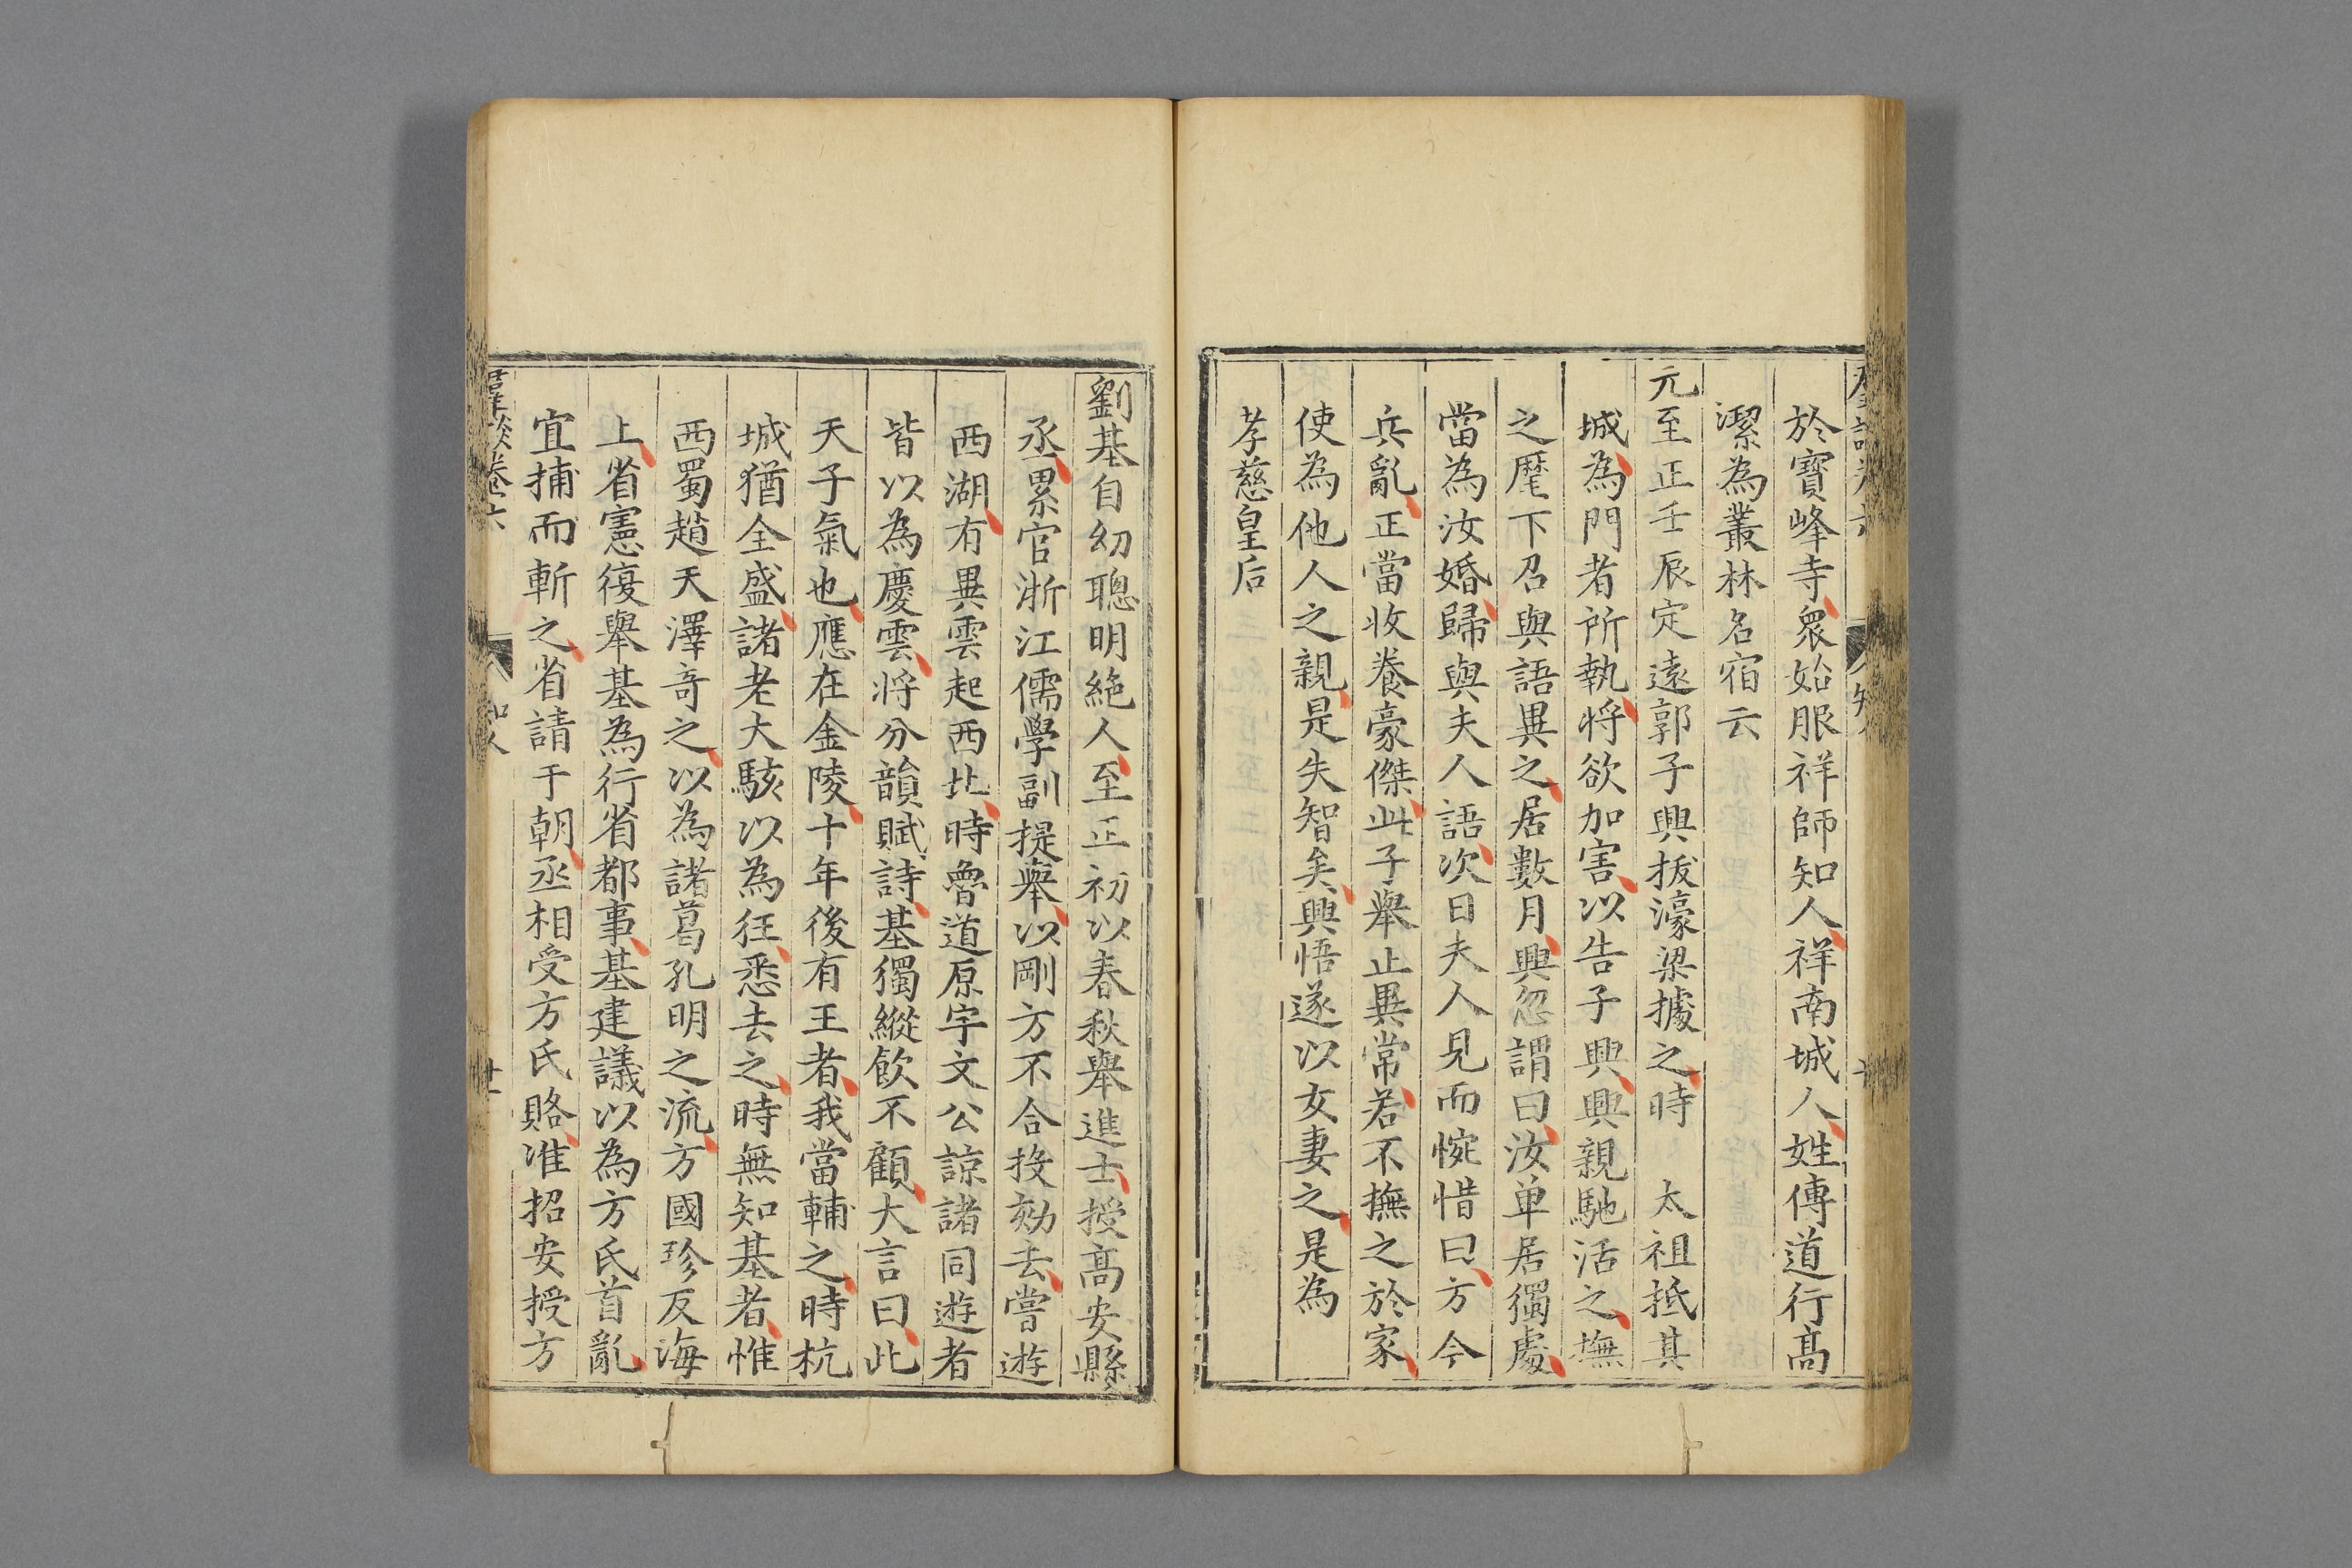 於寳峰寺衆始服祥師知人祥南城人姓傳道行髙
潔為叢林名宿云
元至正壬辰定遠郭子興拔濠梁據之時　太祖抵其
城為門者所執将欲加害以告子興興親馳活之撫
之麾下召與語異之居數月興忽謂曰汝单居獨處
當為汝婚歸與夫人語次日夫人見而惋惜曰方今
兵亂正當收養豪傑此子舉止異常若不撫之於家
使為他人之親是失智矣興悟遂以女妻之是為
孝慈皇后
劉基自幼聰明絶人至正初以春秋舉進士授髙安縣
丞累官浙江儒學副提舉以剛方不合投劾去嘗遊
西湖有異雲起西北時魯道原宇文公諒諸同遊者
皆以為慶雲将分韻賦詩基獨縱飲不顧大言曰此
天子氣也應在金陵十年後有王者我當輔之時杭
城猶全盛諸老大駭以為狂悉去之時無知基者惟
西蜀趙天澤竒之以為諸葛孔明之流方國珍反海
上省憲復舉基為行省都事基建議以為方氏首亂
宜捕而斬之省請于朝丞相受方氏賂准招安授方
羣談卷六
知人